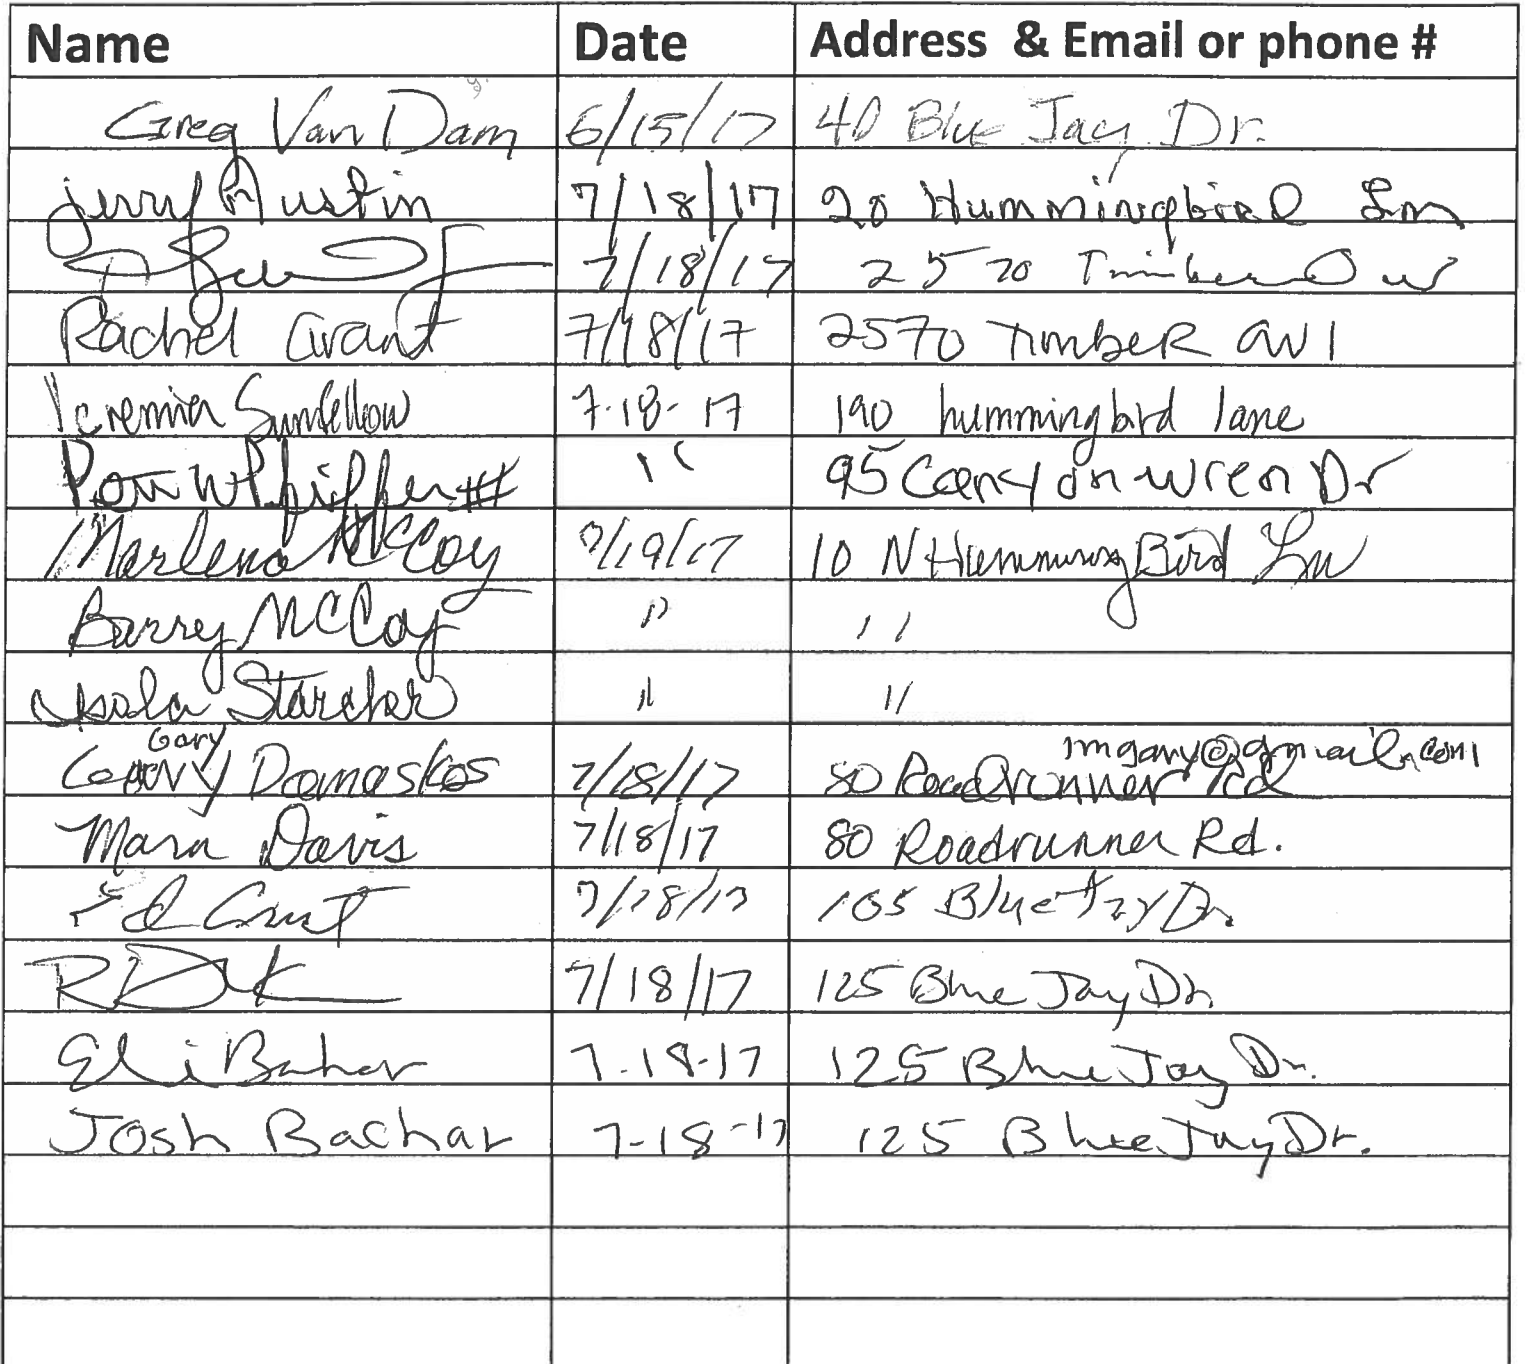 Name Date Address & Email or phone #
Greg Van Dam 6/15/17 40 Blue Jay Dr.
jerry Austin 7/18/17 20 Hummingbird Ln
7/18/17 2570 Timber
Rachel Grant 7/18/17 2570 Timber
Jeremiah Sunfellow 7-18-17 190 hummingbird lane
" 95 Canyon Wren Dr
Marlena McCoy 7/19/17 10 N Humming Bird Ln
Barry McCoy " "
Starcher " "
Gary mgary@gmail.com
Damaskos 7/18/17 80 Roadrunner Rd
Mara Davis 7/18/17 80 Roadrunner Rd.
Ed 7/18/17 105 Blue Jay Dr.
7/18/17 125 Blue Jay Dr.
Eli Bahar 7-18-17 125 Blue Jay Dr.
Josh Bachar 7-18-17 125 Blue Jay Dr.